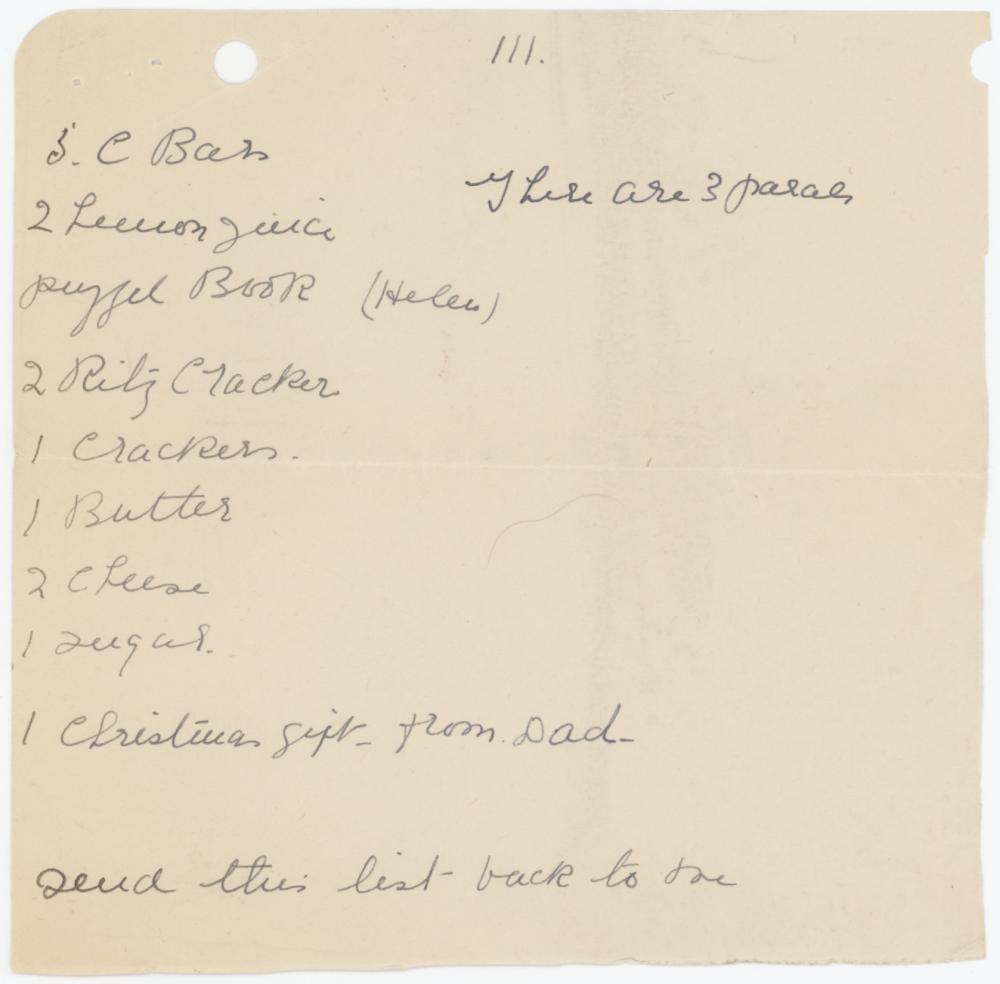 111.
5. C Bars
There are 3 parals
2 Lemon juice
puzzel Book (Helen)
2 Ritz Cracker
1 Crackers.
1 Butter
2 Cheese
1 sugar.
1 Christmas gift - from Dad -
send this list back to me